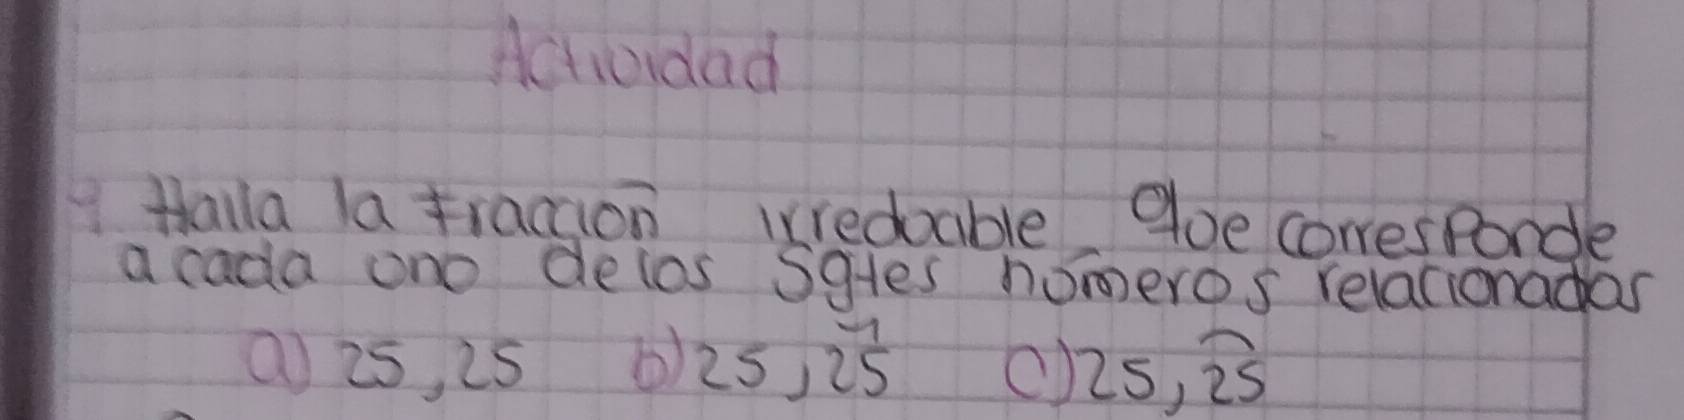 Actividad
Halla la fracción irreducible que corresponde
a cada uno de los sgtes números relacionados
a) 25,25 b) 25,25 c) 25,25